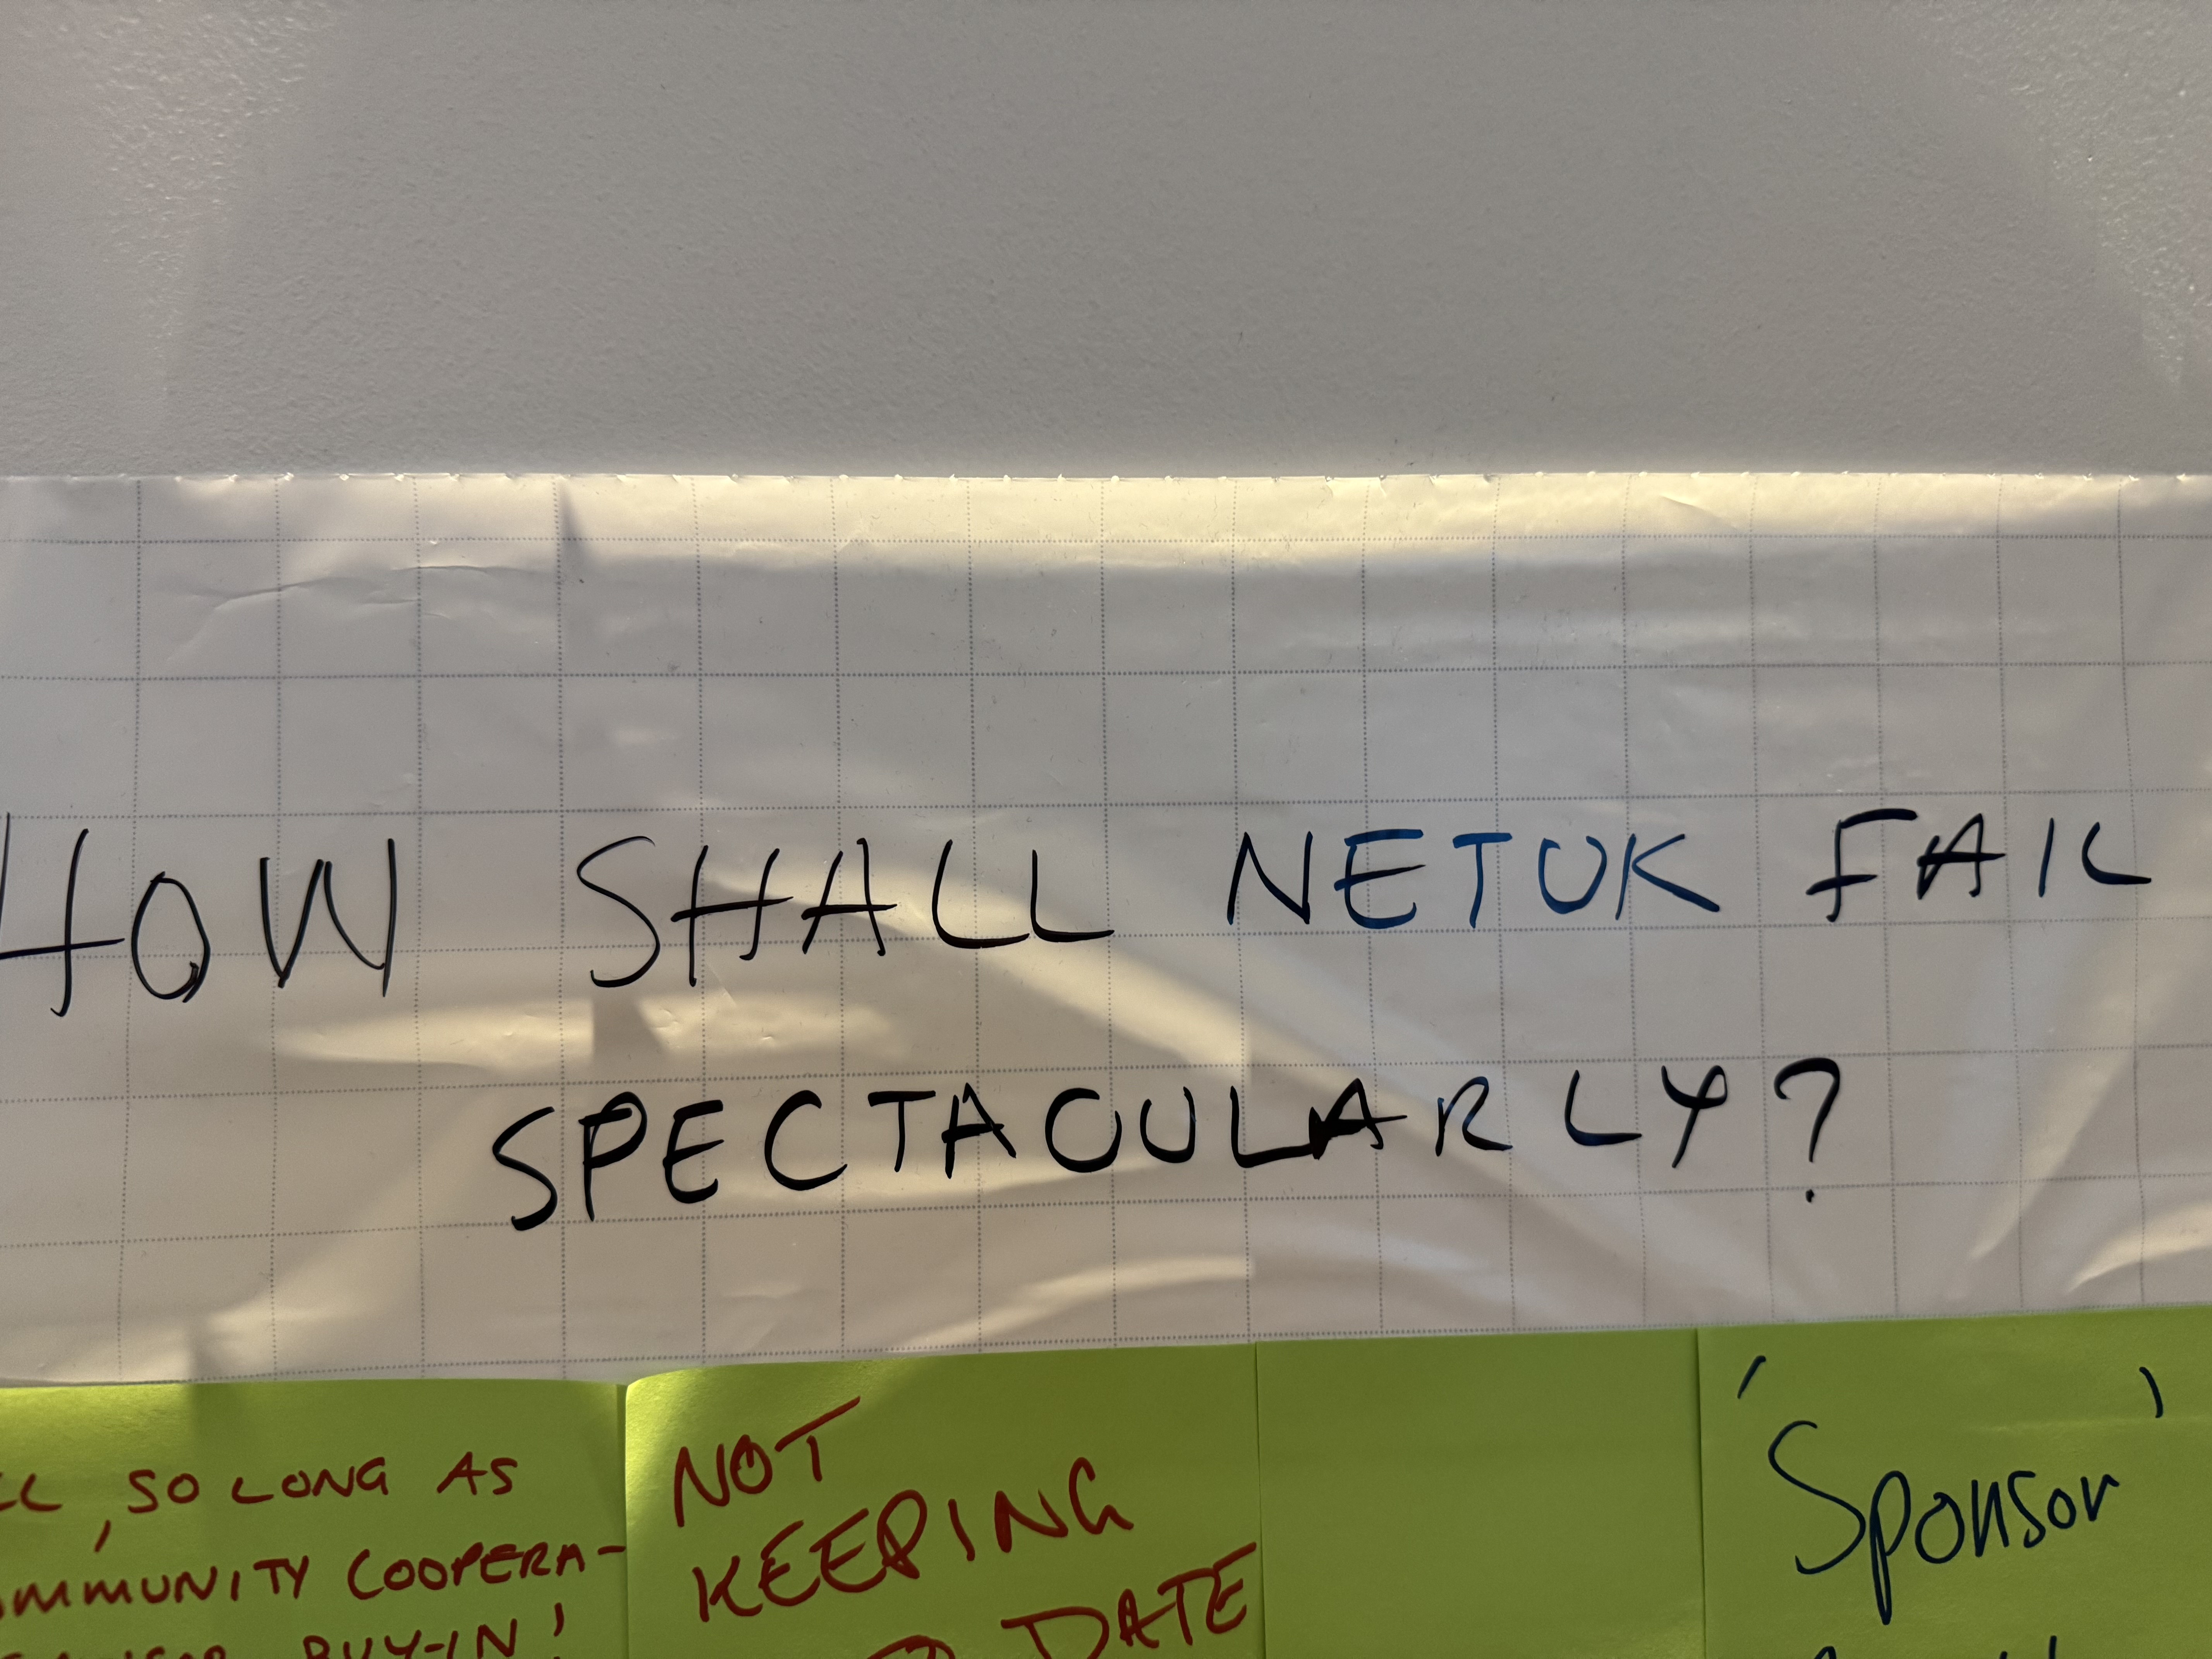 HOW SHALL NETUK FAIL
SPECTACULARLY?
SO LONG AS
COOPERA-
BUY-IN!
NOT
KEEPING
DATE
'Sponsor'